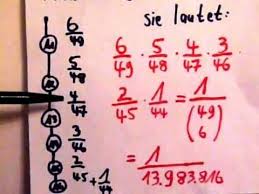 Sie lautet:
6/49 · 5/48 · 4/47 · 3/46 ·
2/45 · 1/44 = 1/(49 6)
= 1/13.983.816
6/49
5/48
4/47
3/46
2/45 + 1/44